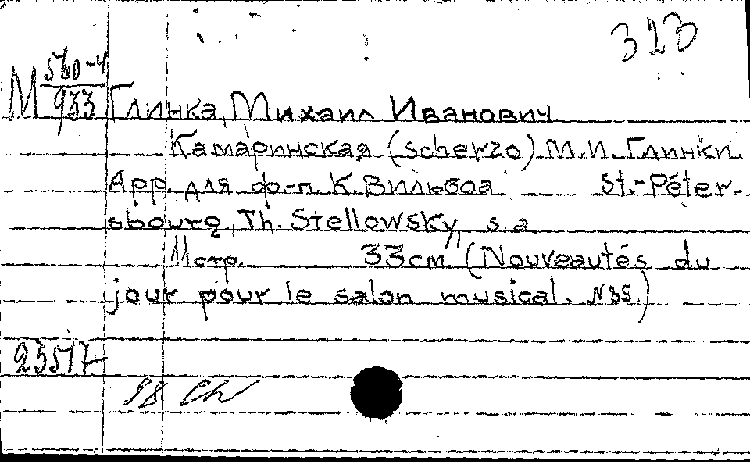 323
М 560-4
933 Глинка, Михаил Иванович
Камаринская (scherzo) М.И. Глинки.
Арр. для ф-п. К. Вильбоа St.-Péter-
sbourg, Th. Stellowsky, s.a.
11 стр. 33 см. (Nouveautés du
jour pour le salon musical. №35.)
25517